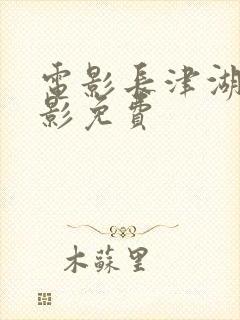 電影長津湖
影免費
木蘇里